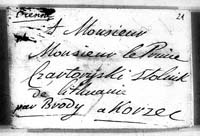 21
A Monsieur
Monsieur le Prince
Czartoryski Stolnik
de Lithuanie
par Brody a Korzec